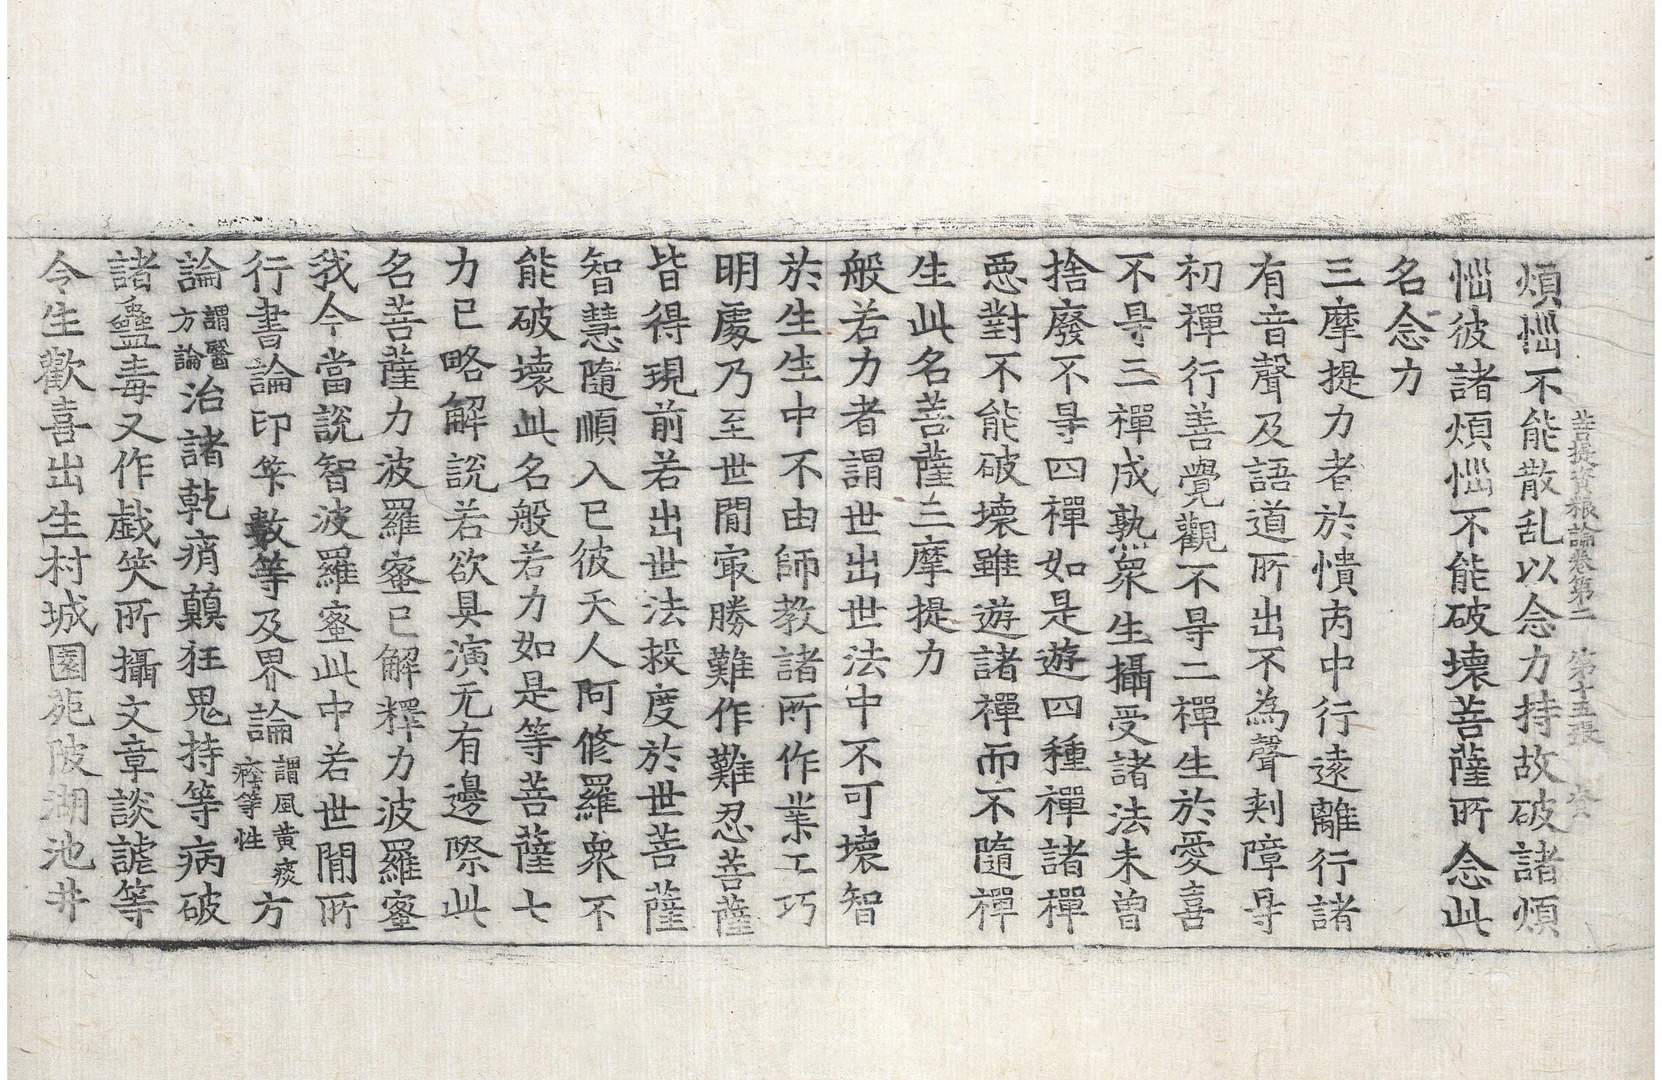 菩提資粮論卷第二　第十五張
煩惱不能散乱以念力持故破諸煩
惱彼諸煩惱不能破壞菩薩所念此
名念力
三摩提力者於憒丙中行遠離行諸
有音聲及語道所出不為聲刾障㝵
初禪行善覺觀不㝵二禪生於愛喜
不㝵三禪成熟衆生攝受諸法未曾
捨廢不㝵四禪如是遊四種禪諸禪
惡對不能破壞雖遊諸禪而不隨禪
生此名菩薩三摩提力
般若力者謂世出世法中不可壞智
於生生中不由師教諸所作業工巧
明處乃至世間㝡勝難作難忍菩薩
皆得現前若出世法救度於世菩薩
智慧隨順入已彼天人阿脩羅衆不
能破壞此名般若力如是等菩薩七
力已略解說若欲具演无有邊際此
名菩薩力波羅蜜已解釋力波羅蜜
我今當說智波羅蜜此中若世間所
行書論印筭數等及界論謂風黃痰癊等性方
論謂醫方論治諸乾痟顛狂鬼持等病破
諸蠱毒又作戱笑所攝文章談謔等
令生歡喜出生村城園苑陂湖池井